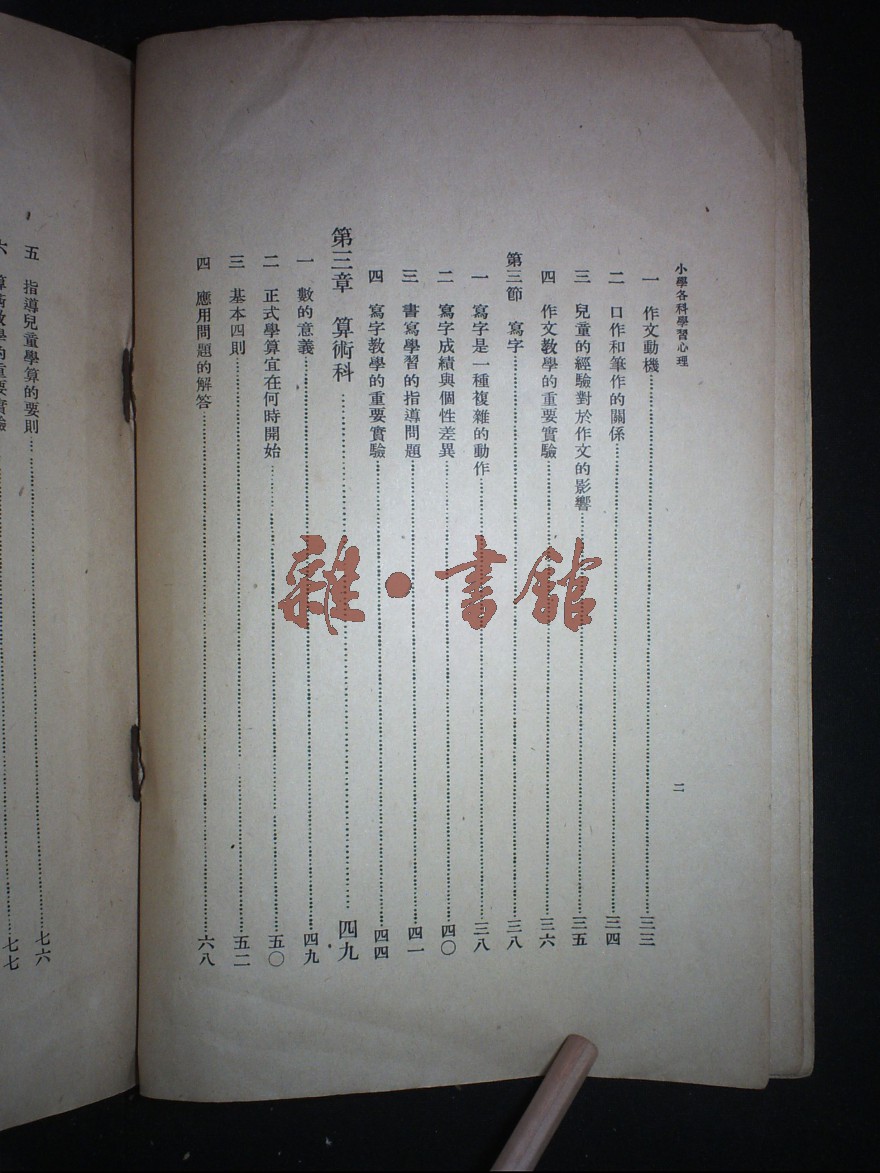 小學各科學習心理
二
一 作文動機……三三
二 口作和筆作的關係……三四
三 兒童的經驗對於作文的影響……三五
四 作文教學的重要實驗……三六
第三節 寫字……三八
一 寫字是一種複雜的動作……三八
二 寫字成績與個性差異……四〇
三 書寫學習的指導問題……四一
四 寫字教學的重要實驗……四四
第三章 算術科……四九
一 數的意義……四九
二 正式學算宜在何時開始……五〇
三 基本四則……五二
四 應用問題的解答……六八
五 指導兒童學算的要則……七六
六 算術教學的重要實驗……七七
雜·書館